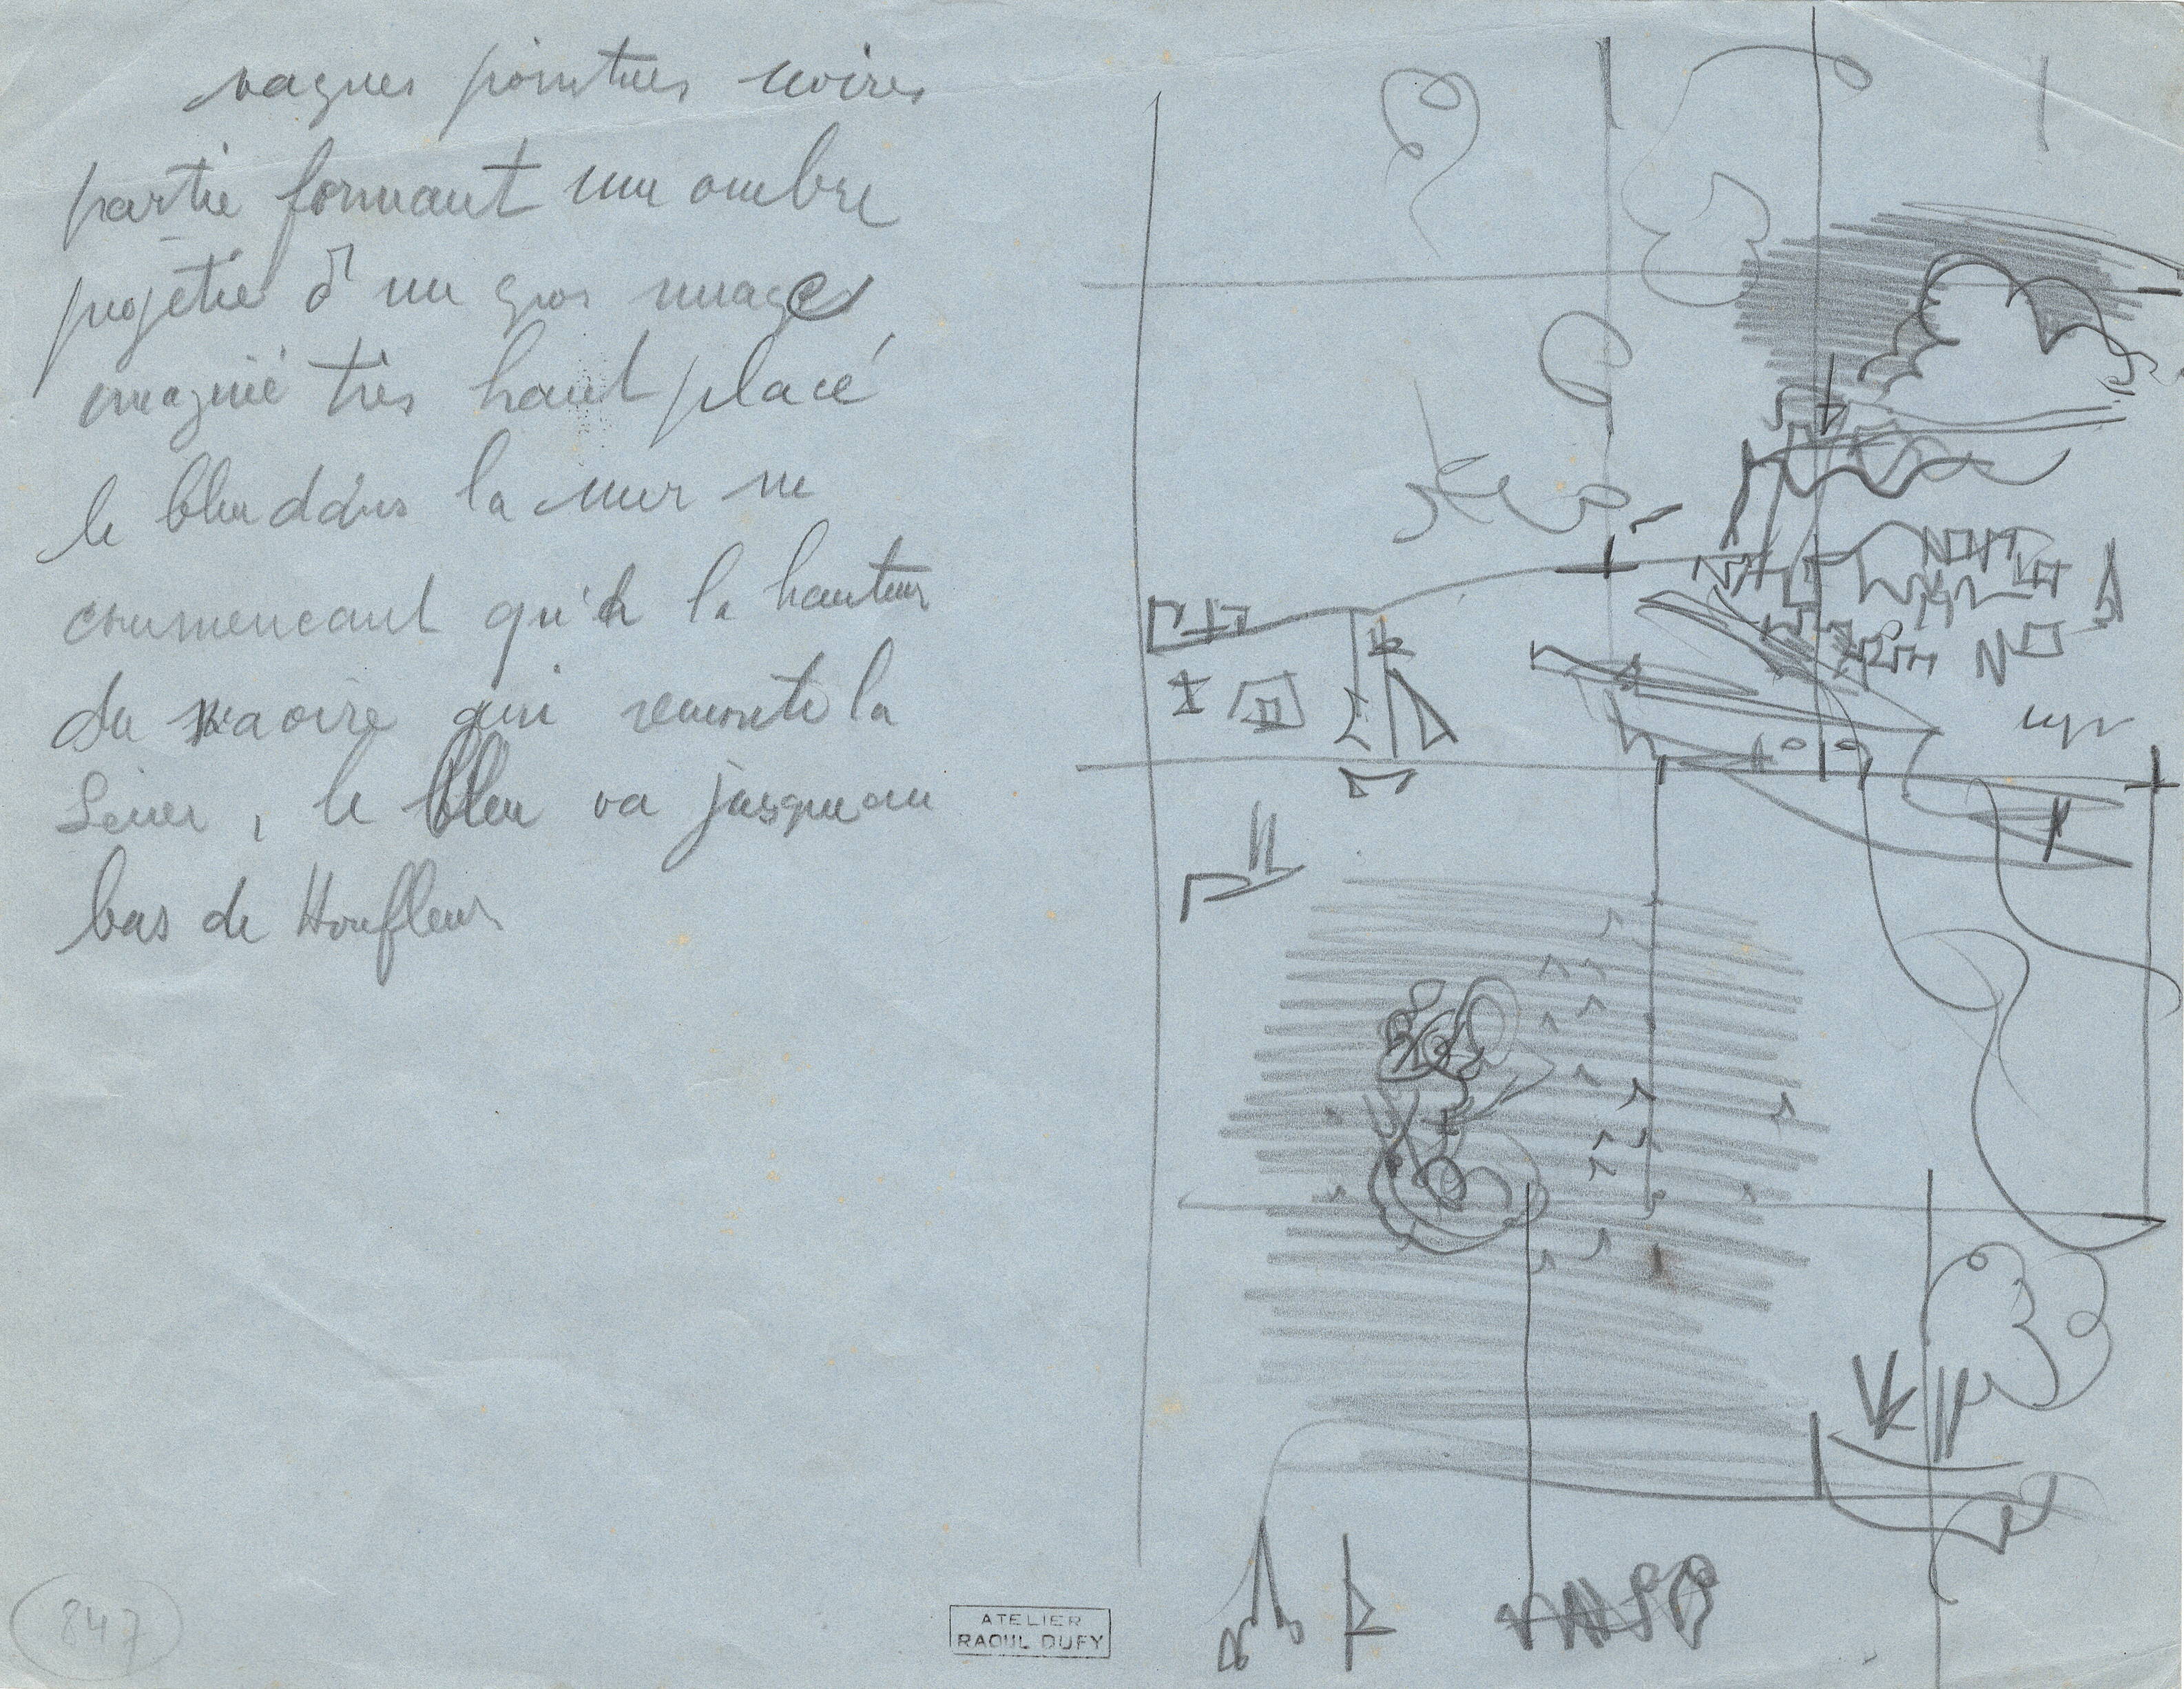 vagues pointues noires
partie formant une ombre
projetée d'un gros nuage
imaginé très haut placé
le bleu dans la mer ne
commencant qu'à la hauteur
du qui remonte la
Seine, le bleu va jusqu'au
bas de Honfleur
847
ATELIER
RAOUL DUFY